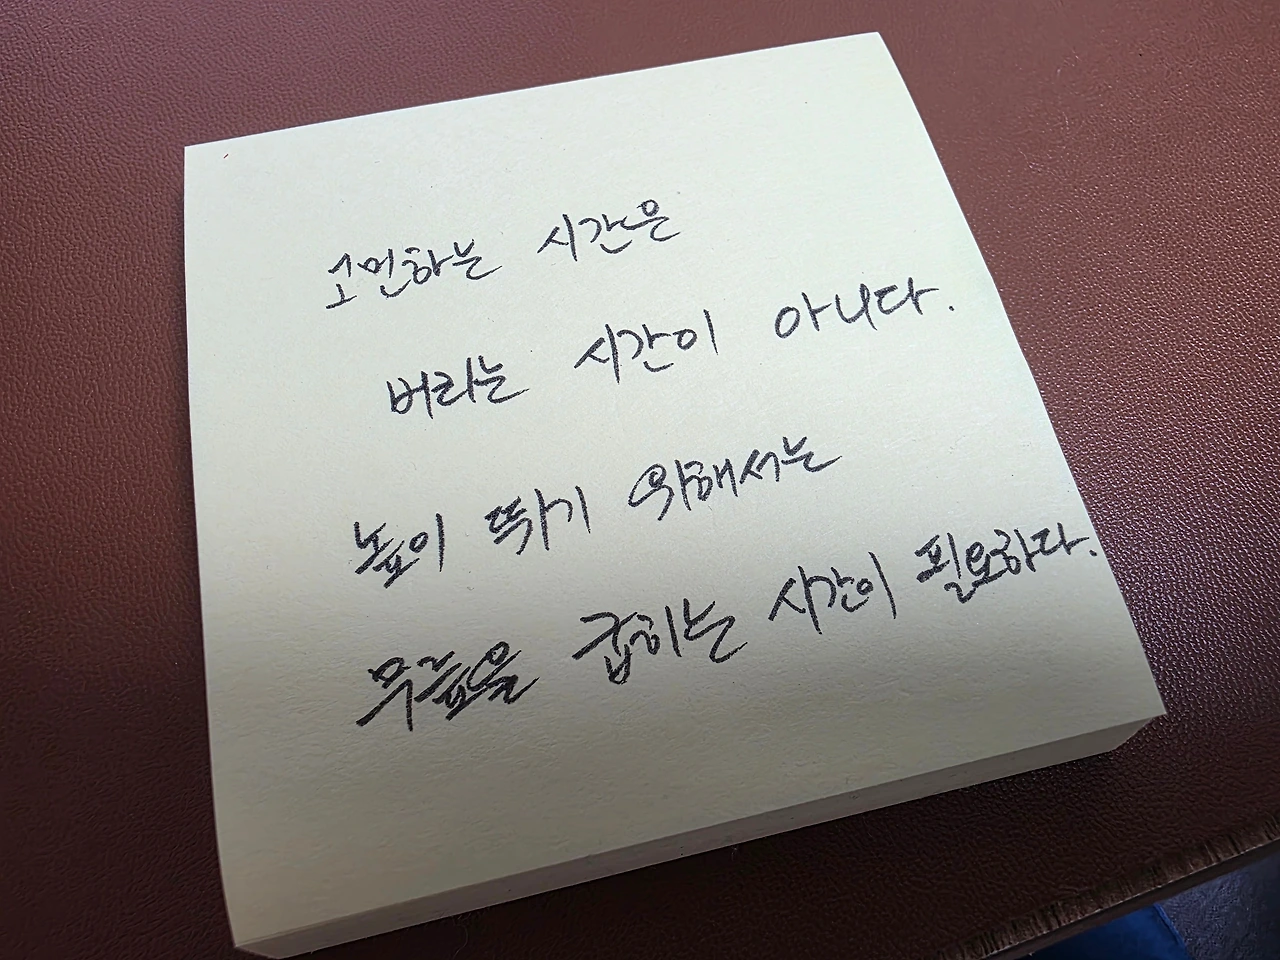 고민하는 시간은
버리는 시간이 아니다.
높이 뛰기 위해서는
무릎을 굽히는 시간이 필요하다.